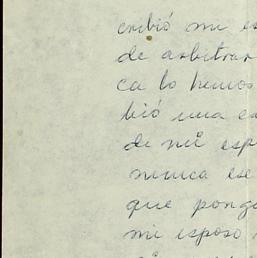 cribió mi es
de arbitrar
ca lo hemos
bió una ca
de mi esp
nunca ese
que pong
mi esposo